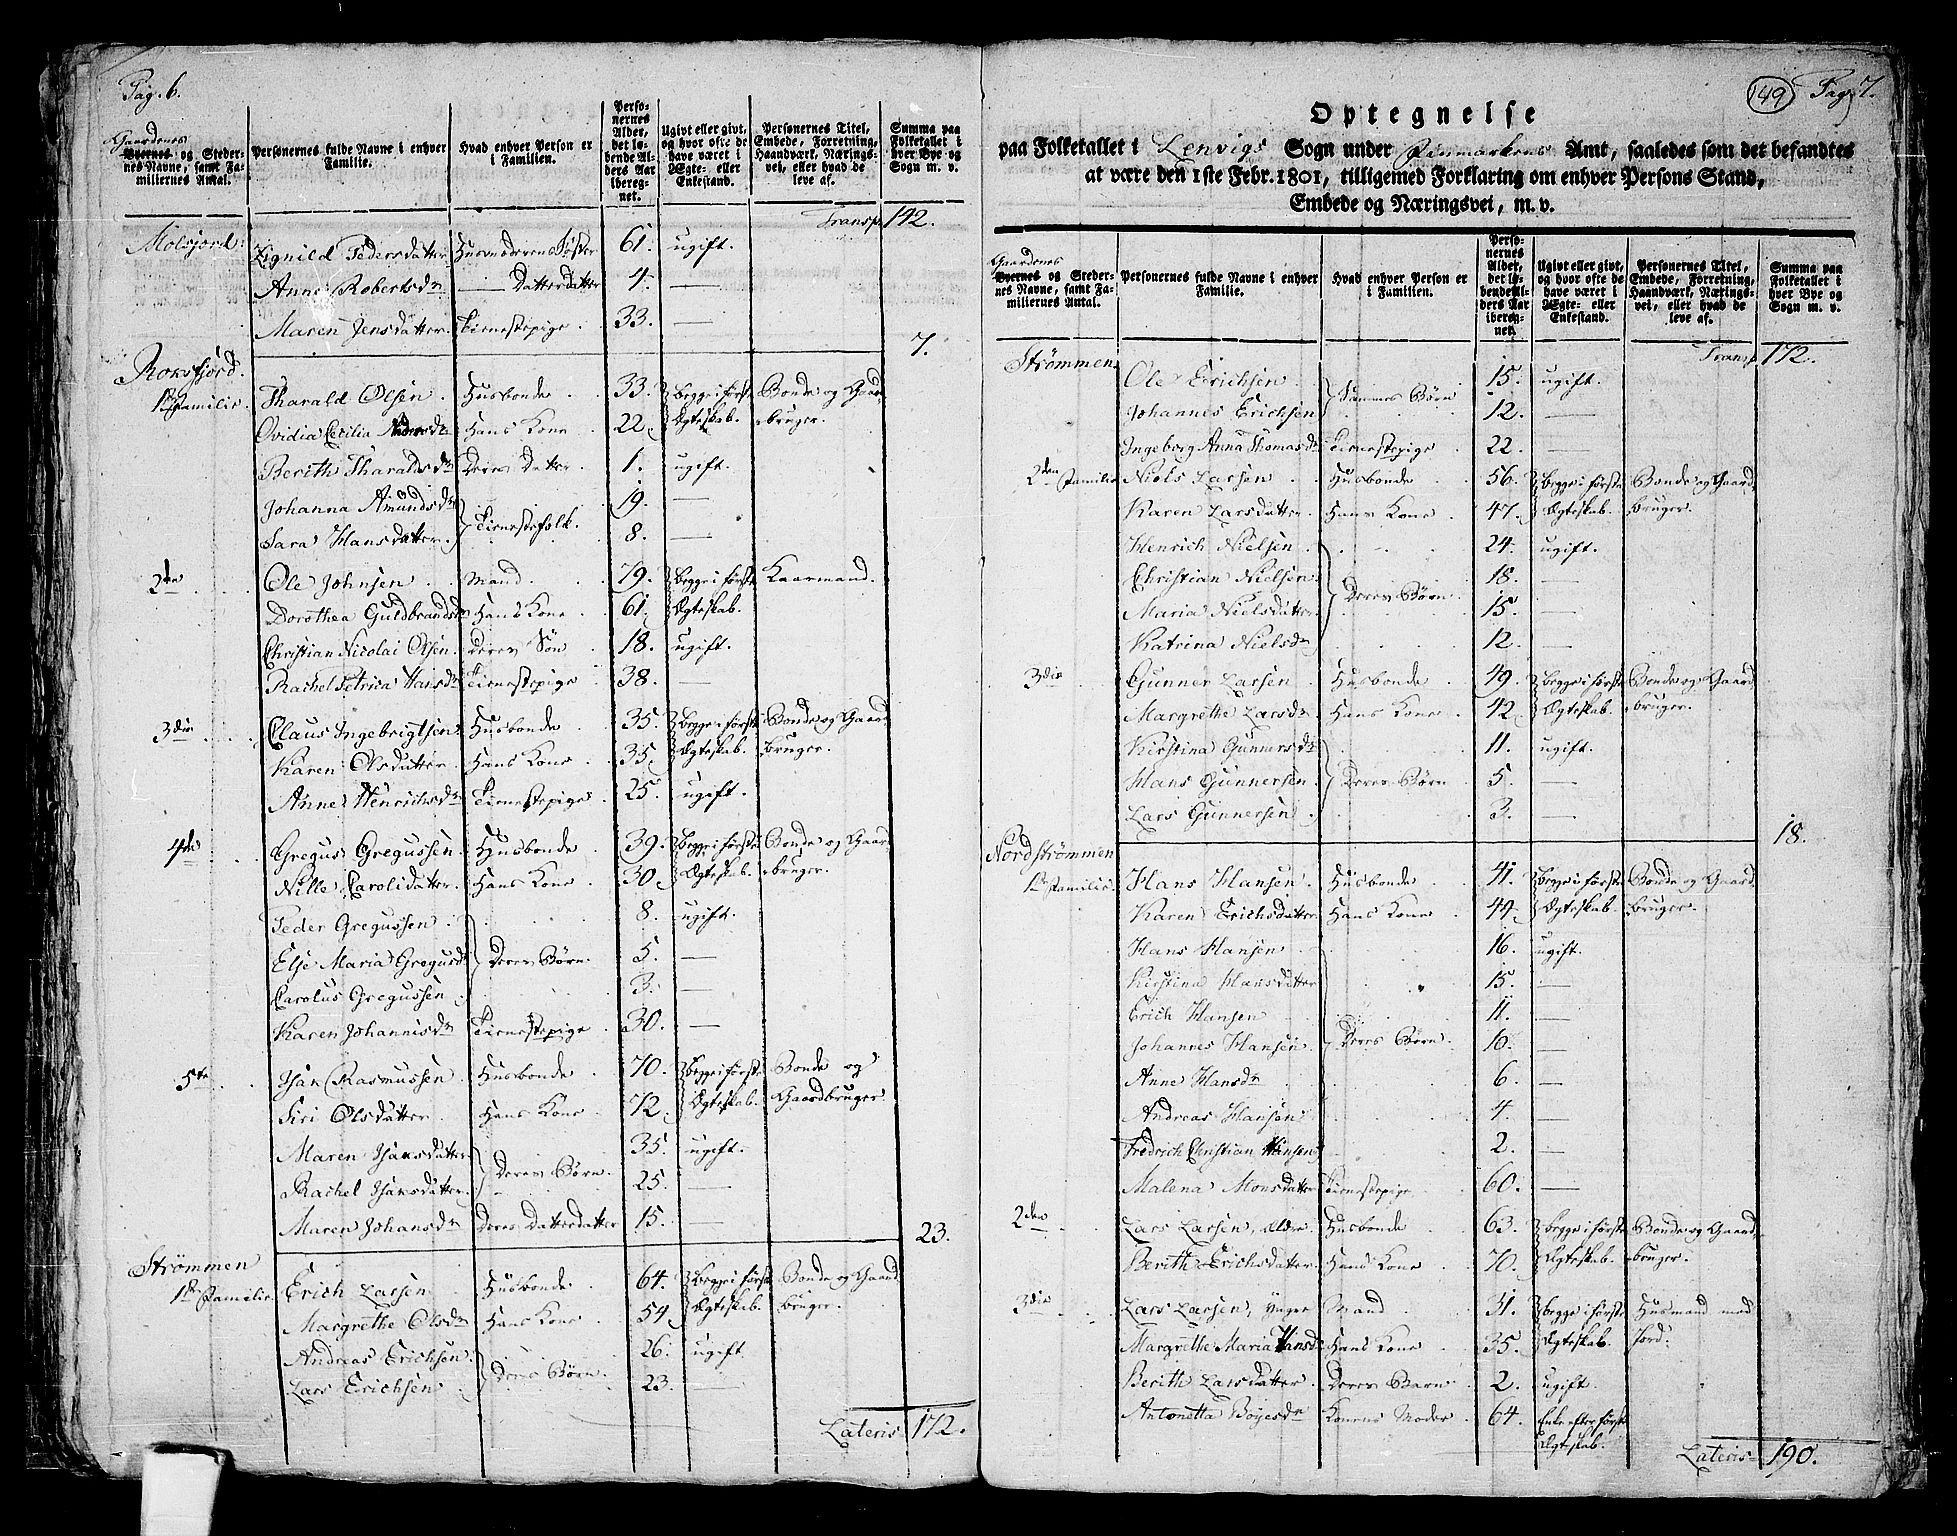 Pag. 6.
Gaardenes
Byernes og Steder-
nes Navne, samt Fa-
miliernes Antal.
Personernes fulde Navne i enhver
Familie.
Hvad enhver Person er
i Familien.
Perso-
nernes
Alder,
det lø-
bende Al-
ders Aar
iberegnet.
Ugivt eller givt,
og hvor ofte de
have været i
Ægte- eller
Enkestand.
Personernes Titel,
Embede, Forretning,
Haandværk, Nærings-
vei, eller hvad de
leve af.
Summa paa
Folketallet i
hver Bye og
Sogn m. v.
Transp. 142.
Molsjord: Zignild Pedersdatter Husmoderens Søster 61. ugift.
Anne Robertsdr — Datterdatter 4. —
Maren Jensdatter Tienestepige 33. —
7.
Roksfjord.
1ste Familie. Tharald Olsen Husbonde 33. Begge i første Bonde og Gaard
Ovidia Cecilia Hans Kone 22. Ægteskab. bruger.
Berith Tharaldsdr Deres Datter 1. ugift.
Johanna Amundsdr 19. —
Tienestefolk.
Sara Hansdatter 8. —
2den Ole Johnsen Mand 79. Begge i første Kaarmand.
Dorothea Guldbrandsdr Hans Kone 61. Ægteskab.
Christian Nicolai Olsen Deres Søn 18. ugift.
Rachel Petrica Hansdr Tienestepige 38. —
3die Claus Ingebrigtsen Husbonde 35. Begge i første Bonde og Gaard
Karen Olsdatter Hans Kone 35. Ægteskab. bruger.
Anne Henrichsdr Tienestepige 25. ugift.
4de Gregus Gregussen Husbonde 39. Begge i første Bonde og Gaard
Nille Carolidatter Hans Kone 30. Ægteskab. bruger.
Peder Gregussen 8. ugift.
Else Maria Gregusdr Deres Børn 5. —
Carolus Gregussen 3. —
Karen Johannisdr Tienestepige 30. —
5te Isak Rasmussen Husbonde 70. Begge i første Bonde og
Siri Olsdatter Hans Kone 72. Ægteskab. Gaardbruger
Maren Isaksdatter 35. ugift.
Deres Børn.
Rachel Isaksdatter 25. —
Maren Johansdr Deres Datterdatter 15. —
23.
Strømmen
1ste Familie Erich Larsen Husbonde 64. Begge i første Bonde og Gaard
Margrethe Olsdr Hans Kone 54. Ægteskab. bruger.
Andreas Erichsen 26. ugift
Deres Børn.
Lars Erichsen 23. —
Lateris 172.
149 Pag. 7.
Optegnelse
paa Folketallet i Lenvigs Sogn under Finmarkens Amt, saaledes som det befandtes
at være den 1ste Febr. 1801, tilligemed Forklaring om enhver Persons Stand,
Embede og Næringsvei, m. v.
Gaardenes
Byernes og Steder-
nes Navne, samt Fa-
miliernes Antal.
Personernes fulde Navne i enhver
Familie.
Hvad enhver Person er
i Familien.
Perso-
nernes
Alder,
det lø-
bende Al-
ders Aar
iberegnet.
Ugivt eller givt,
og hvor ofte de
have været i
Ægte- eller
Enkestand.
Personernes Titel,
Embede, Forretning,
Haandværk, Nærings-
vei, eller hvad de
leve af.
Summa paa
Folketallet i
hver Bye og
Sogn m. v.
Transp. 172.
Strømmen Ole Erichsen 15. ugift.
Sammes Børn
Johannes Erichsen 12. —
Ingeborg Anna Thomasdr Tienestepige 22. —
2den Familie Niels Larsen Husbonde 56. Begge i første Bonde og Gaard
Karen Larsdatter Hans Kone 47. Ægteskab. bruger.
Henrich Nielsen 24. ugift.
Christian Nielsen 18. —
Deres Børn
Maria Nielsdatter 15. —
Katrina Nielsdr 12. —
3die Gunner Larsen Husbonde 49. Begge i første Bonde og Gaard
Margrethe Larsdr Hans Kone 42. Ægteskab. bruger.
Kirstina Gunnersdr 11. ugift.
Hans Gunnersen Deres Børn 5. —
Lars Gunnersen 3. —
18.
Nordstrømmen
1ste Familie Hans Hansen Husbonde 41. Begge i første Bonde og Gaard
Karen Erichsdatter Hans Kone 44. Ægteskab. bruger.
Hans Hansen 16. ugift.
Kirstina Hansdatter 15. —
Erich Hansen 11. —
Johannes Hansen Deres Børn 10. —
Anne Hansdr 6. —
Andreas Hansen 4. —
Fredrich Christian Hansen 2. —
Malena Monsdatter Tienestepige 60. —
2den Lars Larsen, ældre Husbonde 63. Begge i første Bonde og Gaard
Berith Erichsdatter Hans Kone 70. Ægteskab. bruger.
3die Lars Larsen, yngre Mand 31. Begge i første Husmand med
Margrethe Maria Hansdr Hans Kone 35. Ægteskab. Jord:
Berith Larsdatter Deres Barn 2. ugift.
Antonetta Böyesdr Konens Moder 64. Enke efter første
Ægteskab.
Lateris 190.